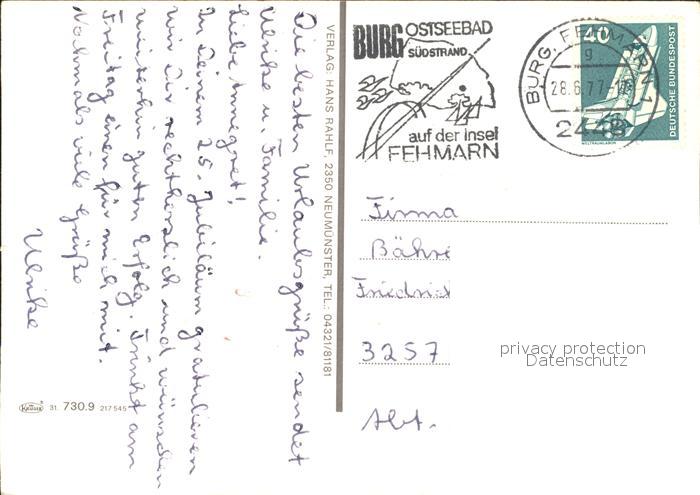 Die besten Urlaubsgrüße sendet
Ulrike u. Familie.
Liebe Annegret!
Zu Deinem 25. Jubiläum gratulieren
wir Dir recht herzlich und wünschen
weiterhin guten Erfolg. Trinkt am
Freitag einen für mich mit.
Nochmals viele Grüße
Ulrike
KRÜGER 31. 730.9 217545
VERLAG: HANS RAHLF, 2350 NEUMÜNSTER, TEL.: 04321/81181
BURG OSTSEEBAD
SÜDSTRAND
auf der Insel
FEHMARN
BURG, FEHMARN 1
g
28.6.77
2448
40
DEUTSCHE BUNDESPOST
WELTRAUMLABOR
Firma
Bähre
Friedrich
3257
privacy protection
Datenschutz
Abt.